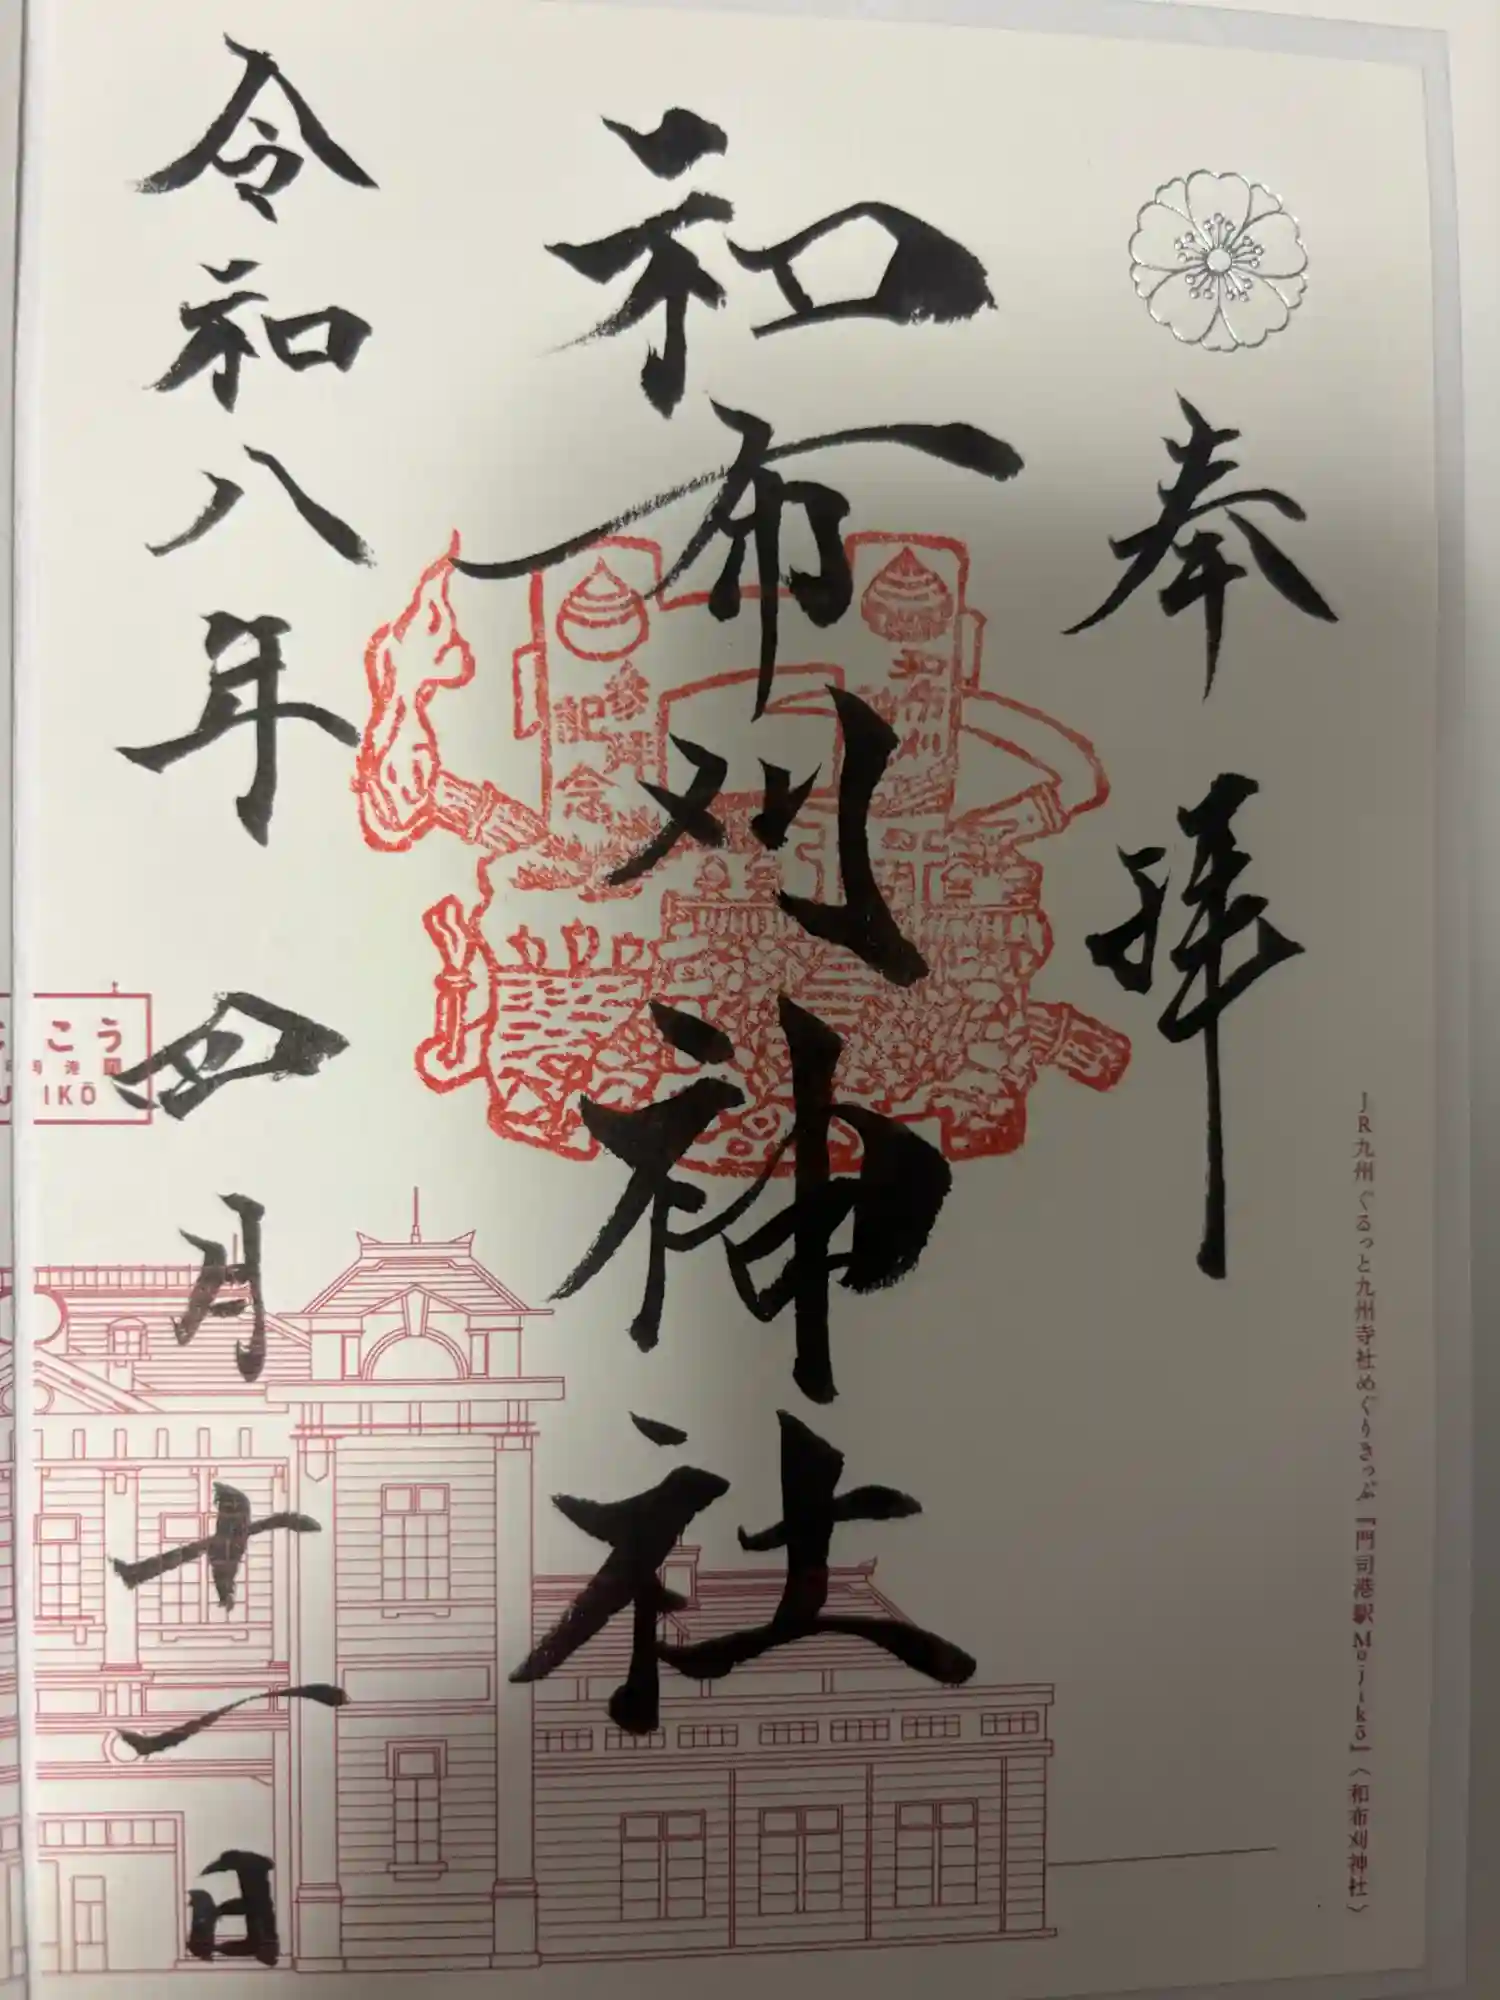 奉拝
和布刈神社
令和八年四月十一日
JR九州ぐるっと九州寺社めぐりきっぷ『門司港駅Mojikō』〈和布刈神社〉
和布刈神社
参拝記念
こう
IKŌ